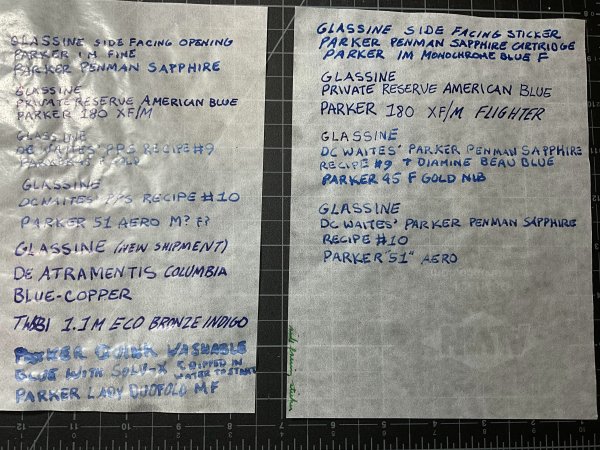 GLASSINE SIDE FACING OPENING
PARKER IM FINE
PARKER PENMAN SAPPHIRE
GLASSINE
PRIVATE RESERVE AMERICAN BLUE
PARKER 180 XF/M
GLASSINE
DC WAITES' PPS RECIPE #9
PARKER 45 F GOLD
GLASSINE
DC WAITES' PPS RECIPE #10
PARKER 51 AERO M? F?
GLASSINE (NEW SHIPMENT)
DE ATRAMENTIS COLUMBIA
BLUE-COPPER
TWSBI 1.1M ECO BRONZE INDIGO
PARKER QUINK WASHABLE
BLUE WITH SOLV-X DIPPED IN
WATER TO START
PARKER LADY DUOFOLD MF
GLASSINE SIDE FACING STICKER
PARKER PENMAN SAPPHIRE CARTRIDGE
PARKER IM MONOCHROME BLUE F
GLASSINE
PRIVATE RESERVE AMERICAN BLUE
PARKER 180 XF/M FLIGHTER
GLASSINE
DC WAITES' PARKER PENMAN SAPPHIRE
RECIPE #9 + DIAMINE BEAU BLUE
PARKER 45 F GOLD NIB
GLASSINE
DC WAITES' PARKER PENMAN SAPPHIRE
RECIPE #10
PARKER "51" AERO
12
11
10
9
8
7
6
5
4
3
2
1